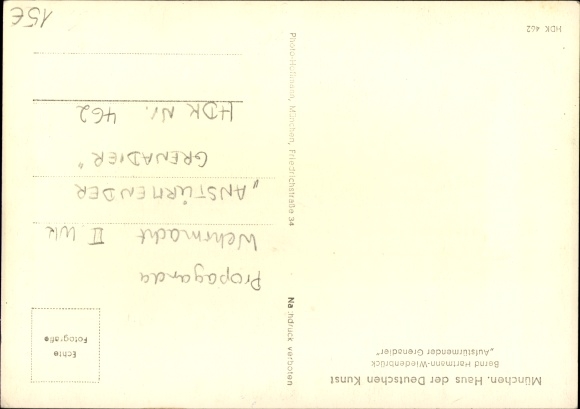 München, Haus der Deutschen Kunst
Bernd Hartmann-Wiedenbrück
„Aufstürmender Grenadier"
Echte
Fotografie
Nachdruck verboten
Photo-Hoffmann, München, Friedrichstraße 34
Propaganda
Wehrmacht II WK
„ANSTÜRMENDER
GRENADIER"
HDK Nr. 462
HDK 462
15€